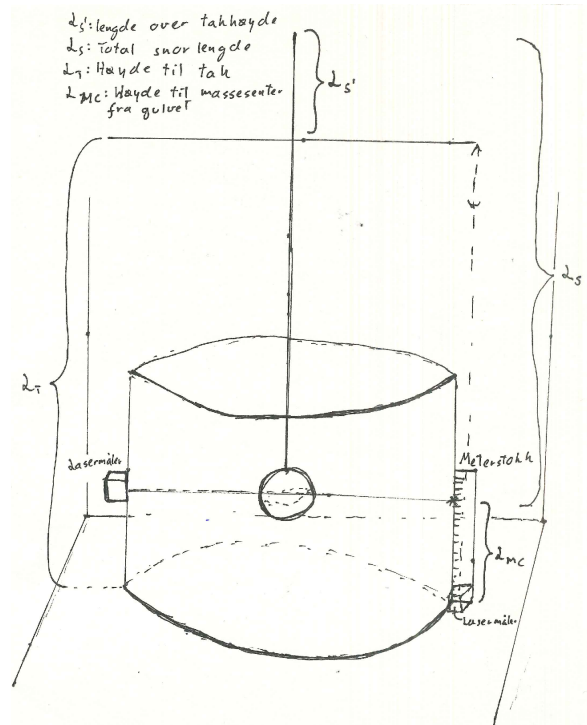 Ls': lengde over takhøyde
Ls: Total snorlengde
LT: Høyde til tak
LMC: Høyde til massesenter
fra gulvet
Ls'
Ls
LT
Lasermåler
Meterstokk
LMC
Lasermåler